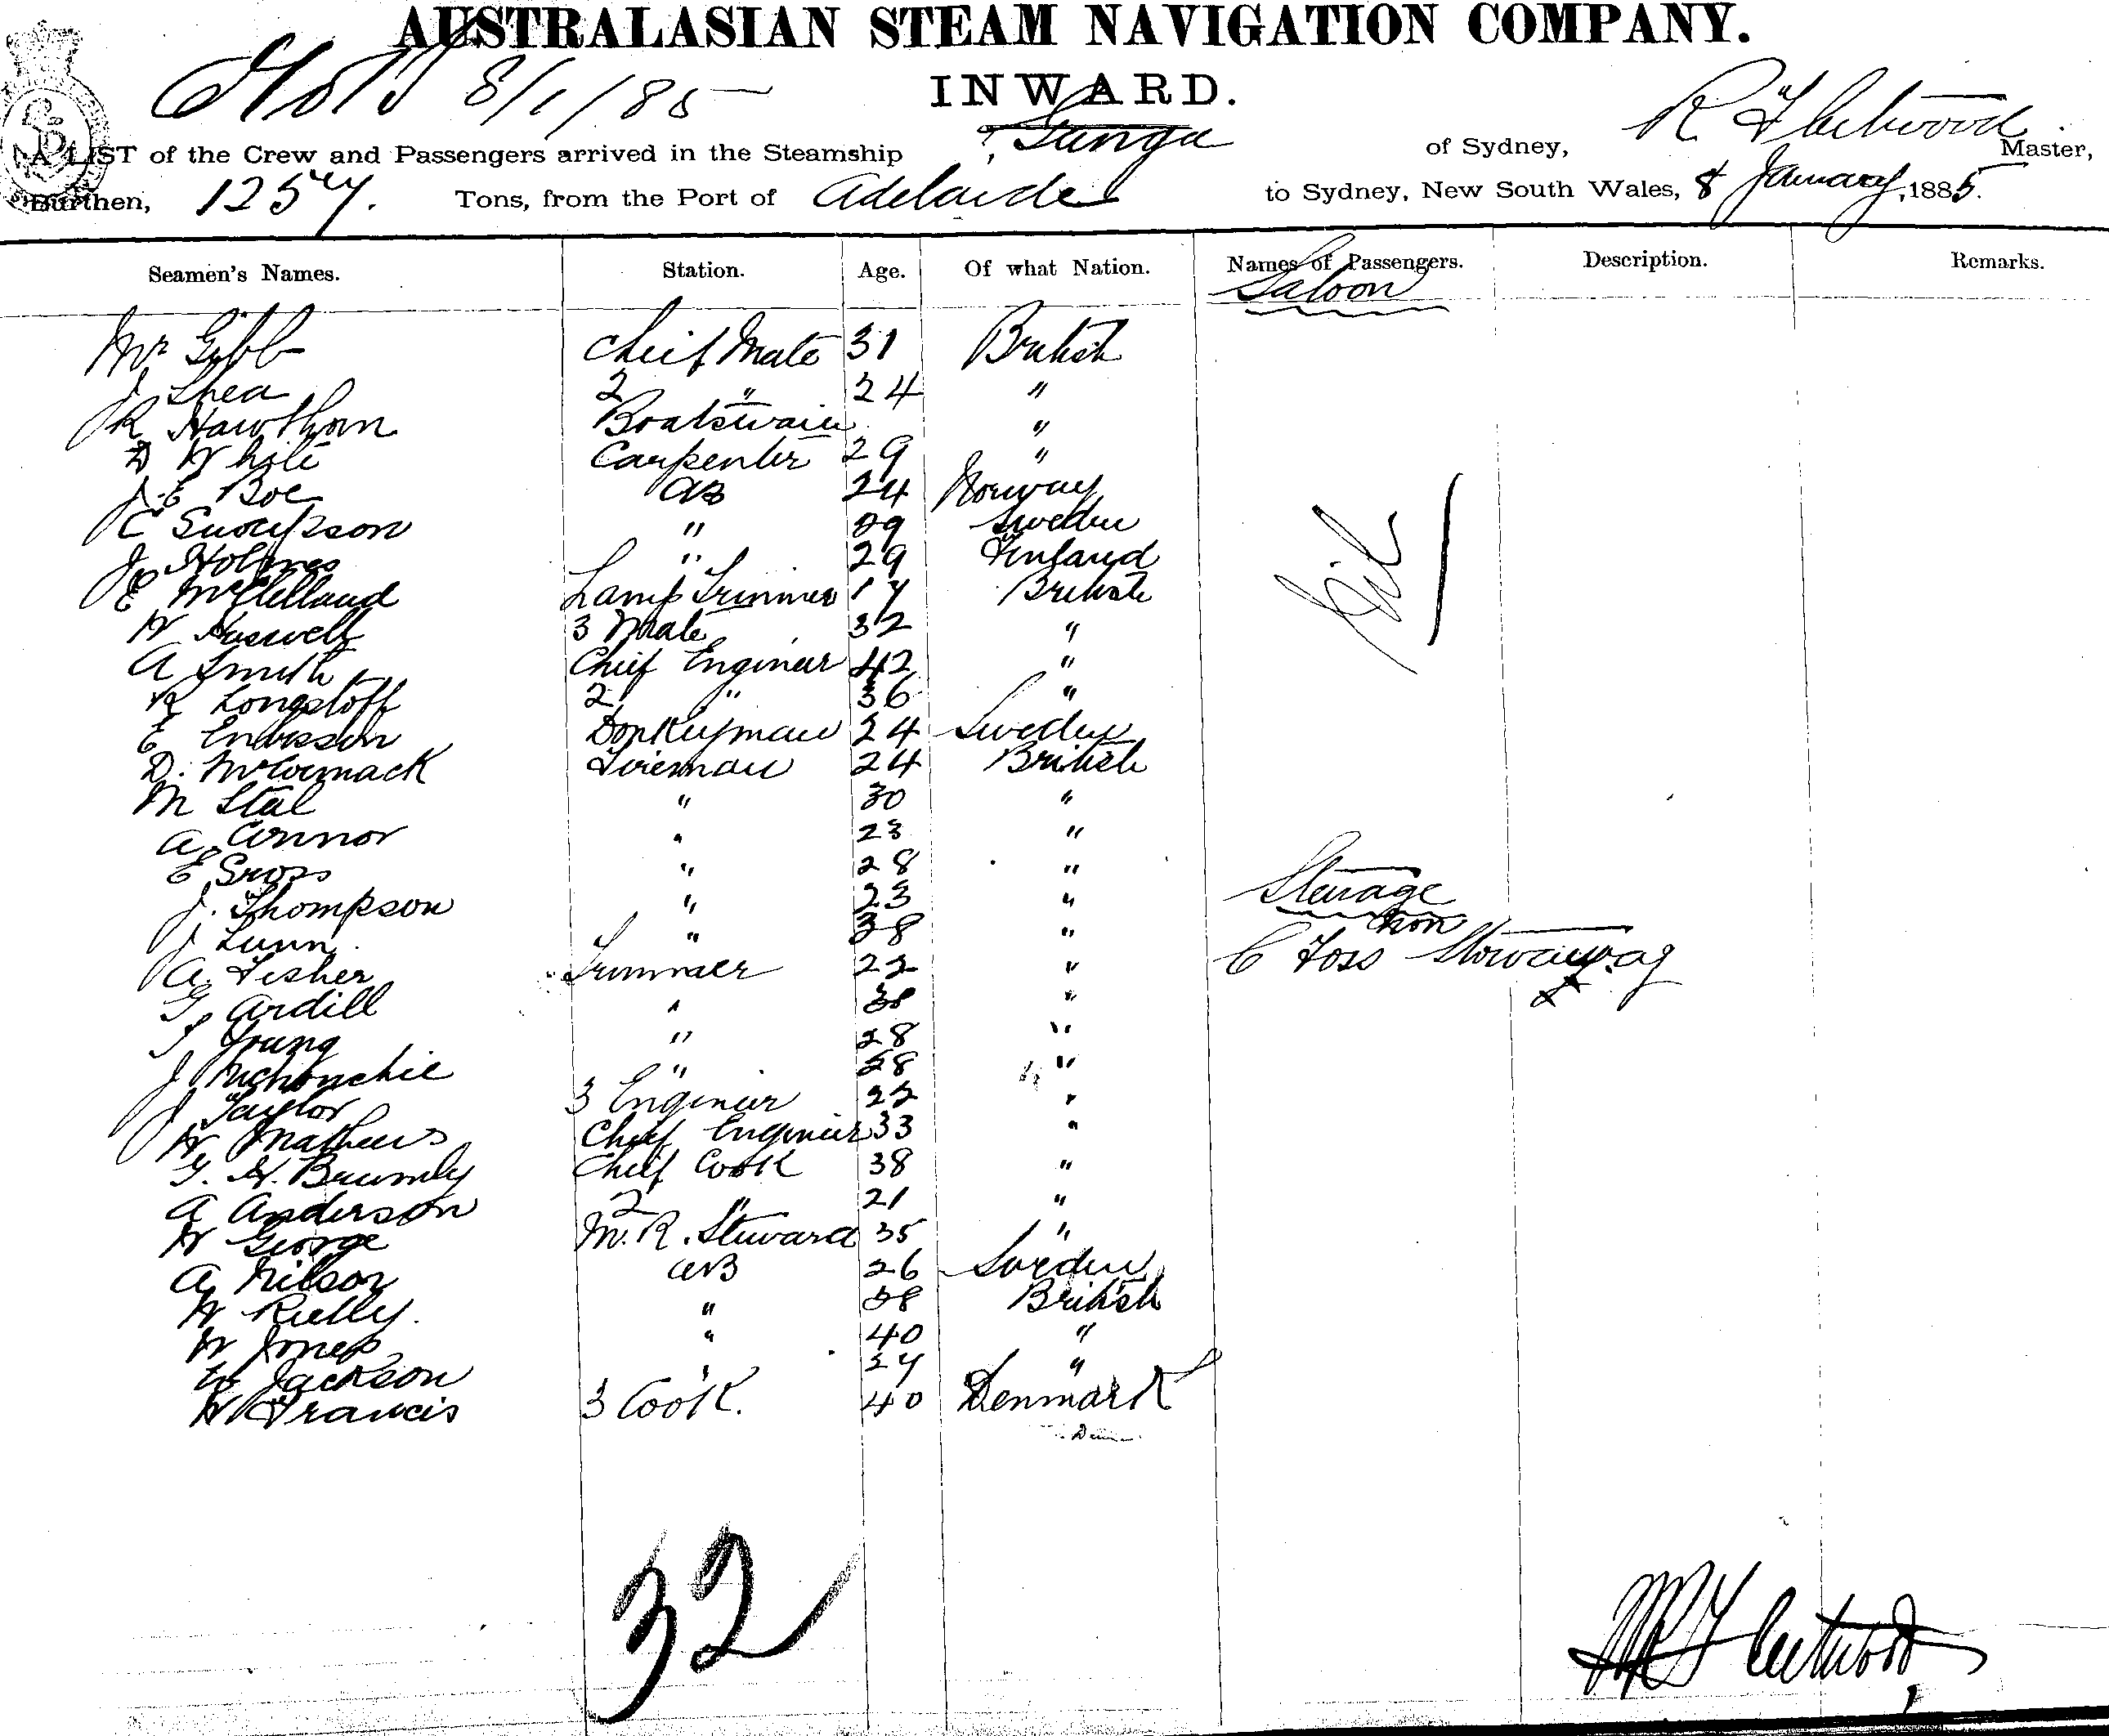 AUSTRALASIAN STEAM NAVIGATION COMPANY.
8/1/85
INWARD.
A LIST of the Crew and Passengers arrived in the Steamship Gunga of Sydney, R Fleetwood Master,
Burthen, 1257. Tons, from the Port of Adelaide to Sydney, New South Wales, 8 January 1885.
Seamen's Names. Station. Age. Of what Nation. Names of Passengers. Description. Remarks.
Saloon
Gibb Chief Mate 31 British
J Shea 2 " 24 "
R Hawthorn Boatswain "
D White Carpenter 29 "
J. E Boe AB 24 Norway
C " 29 Sweden
J Holmes " 29 Finland
Nil
E McClelland Lamp Trimmer 17 British
W 3 Mate 32 "
A Smith Chief Engineer 42 "
R Longstoff 2 " 36 "
E Donkeyman 24 Sweden
D. McCormack Fireman 24 British
M Stal " 30 "
A Connor " 23 "
E " 28 "
J. Thompson " 23 " Steerage
J Lunn " 38 "
A. Fisher Trimmer 22 " C Foss Stowaway
G Ardill " 38 "
Young " 28 "
J McHonchie " 28 "
J Taylor 3 Engineer 22 "
W Mathews Chief Engineer 33 "
G. H. Brumly Chief Cook 38 "
A Anderson 2 " 21 "
W George M. R. Steward 35 "
A Nilson AB 26 Sweden
W Rielly. " 28 British
W Jones " 40 "
W Jackson " 27 "
W Francis 3 Cook. 40 Denmark
32
Fleetwood